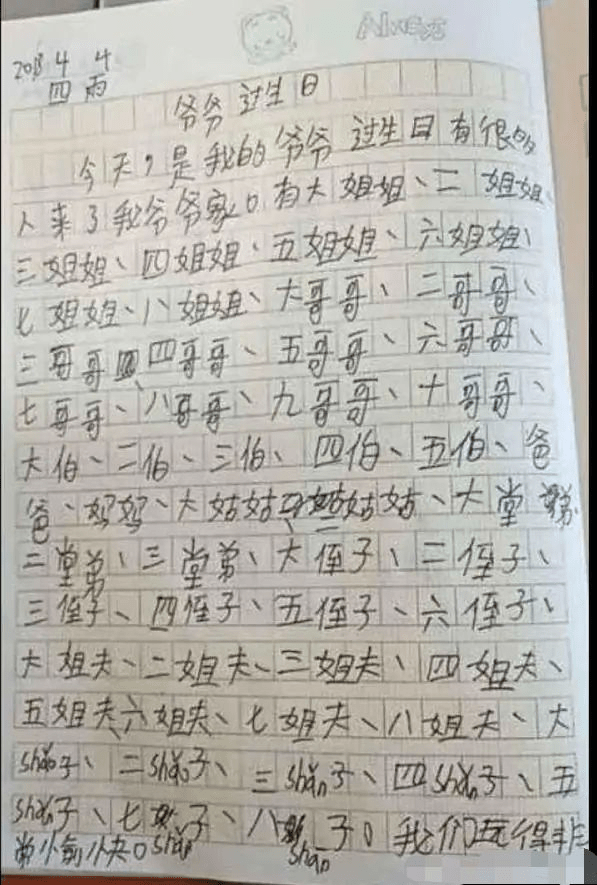 2018 4 4
四 雨
爷爷过生日
今天，是我的爷爷过生日有很多
人来了我爷爷家。有大姐姐、二姐姐、
三姐姐、四姐姐、五姐姐、六姐姐、
七姐姐、八姐姐、大哥哥、二哥哥、
三哥哥、四哥哥、五哥哥、六哥哥、
七哥哥、八哥哥、九哥哥、十哥哥、
大伯、二伯、三伯、四伯、五伯、爸
爸、妈妈、大姑姑、二姑姑、大堂弟
二堂弟、三堂弟、大侄子、二侄子、
三侄子、四侄子、五侄子、六侄子、
大姐夫、二姐夫、三姐夫、四姐夫、
五姐夫、六姐夫、七姐夫、八姐夫、大
shǎo子、二shǎo子、三shǎn子、四shǎn子、五
shǎn子、七shǎn子、八shǎn子。我们玩得非
常愉快。